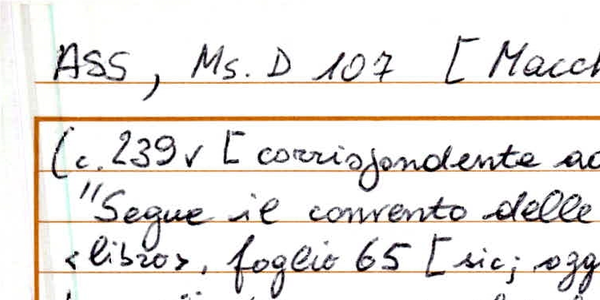 ASS, Ms. D 107 [Macch
(c. 239v [corrispondente ad
"Segue il convento delle
<libro>, foglio 65 [sic; ogg